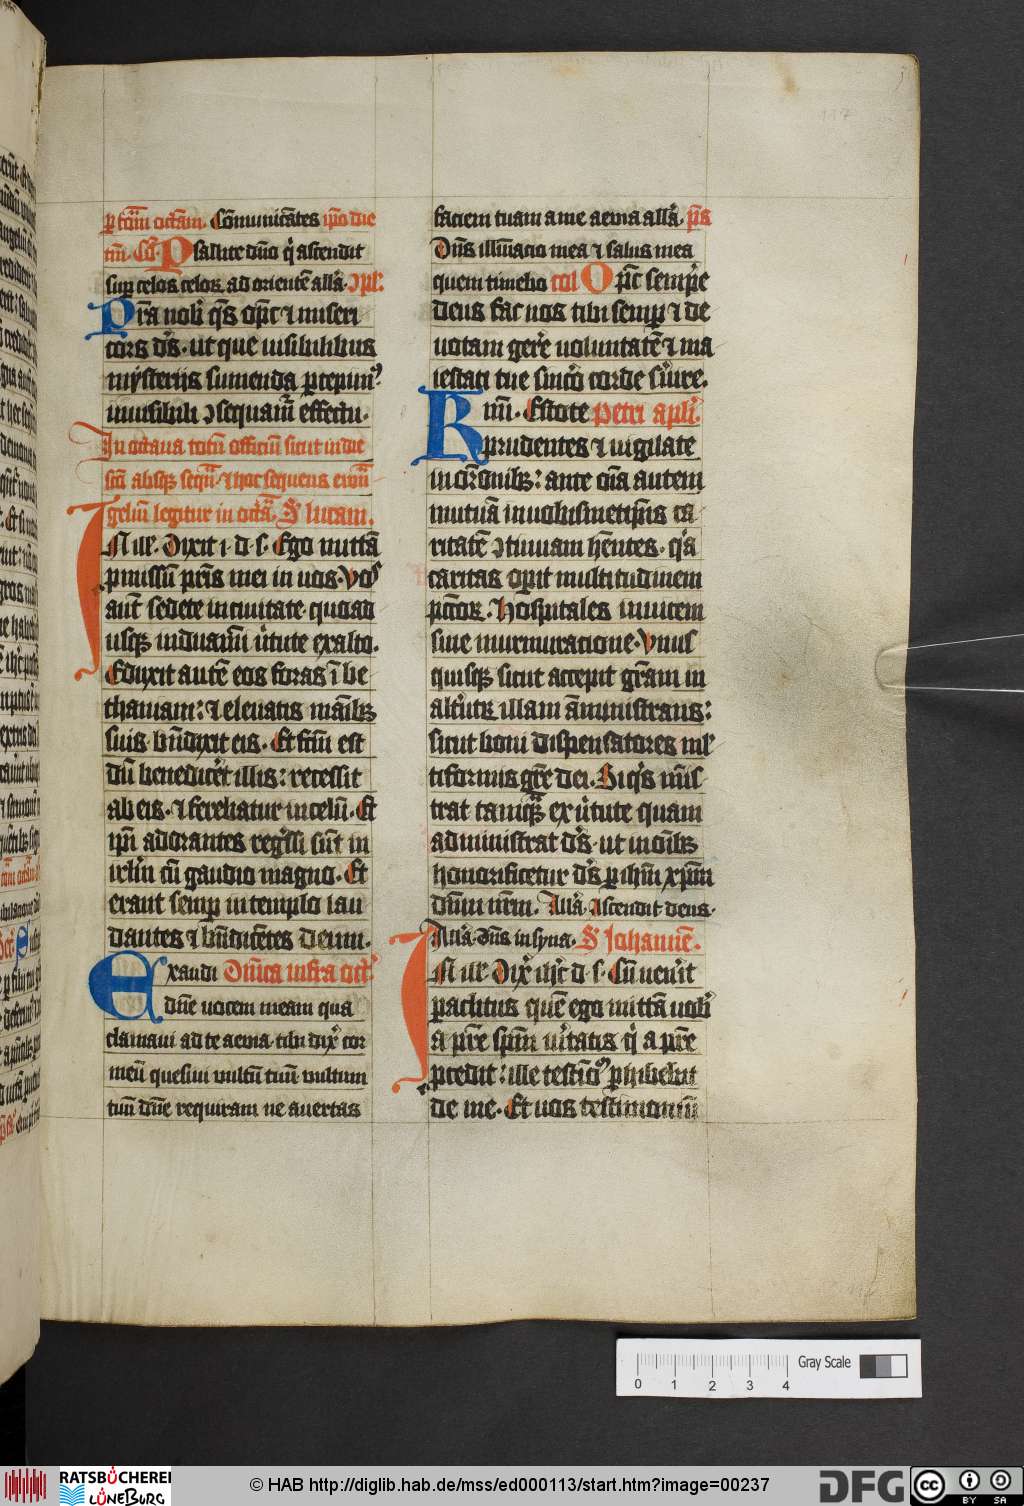 p totam octauam. Cōmunicātes ipo die
tm̄. Cō. Psallite dn̄o q̄ ascendit
sup celos celoꝝ ad orientē all'a. ꝯpl'.
Pr̄a nob' q̄s op̄c ⁊ miseri
cors ds̄. ut que uisibilibus
mysterijs sumenda ꝑcepim9
inuisibili ꝯsequam̄ effectu.
In octaua totū officiū sicut in die
sc̄o absqꝫ sequā ⁊ hoc sequens ewn̄
geliū legitur in octā. S' lucam.
IN ill'. Dixit i. d. s. Ego mittā
ꝓmissū pr̄is mei in uos. Vos
aut̄ sedete in ciuitate. quoad
usqꝫ induamī u̓tute ex alto.
Eduxit autē eos foras ī be
thaniam: ⁊ eleuatis manibꝫ
suis bn̄dixit eis. Et fc̄m est
dū benedicēt illis: recessit
ab eis. ⁊ ferebatur in celū. Et
ip̄i adorantes reḡssi sūt in
irl'm cū gaudio magno. Et
erant semꝑ in templo lau
dantes ⁊ bn̄dicētes deum.
Exaudi Dn̄ica infra oct'.
dn̄e uocem meam qua
clamaui ad te aeuia. tibi dix̄ cor
meū quesiui uultū tuū uultum
tuū dn̄e requiram ne auertas
faciem tuam a me aeuia all'a. ps̄
Dn̄s illūinacio mea ⁊ salus mea
quem timebo col Op̄c sempīe
deus fac nos tibi semꝑ ⁊ de
uotam gere uoluntatē ⁊ ma
iestati tue sincō corde s̄uire.
Km̄. Estote petri apl'i.
prudentes ⁊ uigilate
in orōnibꝫ: ante oīa autem
mutuā in uobismetip̄is ca
ritatē ꝯtinuam hn̄tes. q̄a
caritas oꝑit multitudinem
pc̄toꝝ. Hospitales inuicem
sine murmuracione. Vnus
quisqꝫ sicut accepit gr̄am in
alt̄utꝝ illam am̄inistrans:
sicut boni dispensatores ml'
tiformis gr̄e dei. Siq̄s mīs
trat tamqꝫ ex u̓tute quam
administrat ds̄. ut in oībꝫ
honorificetur ds̄ ꝑ ihm̄ xp̄m
dn̄m nr̄m. All'a. Ascendit deus.
All'a. dn̄s in syna. S' Iohannē.
IN ill' Dix̄ ihc̄ d. s. Cū uen̄it
paclitus quē ego mittā uob'
a pr̄e sp̄m u̓itatis q̄ a pr̄e
ꝓcedit: ille testīoīū ꝑhibebit
de me. Et uos testimoniū
Gray Scale
0 1 2 3 4
RATSBÜCHEREI
LÜNEBURG
© HAB http://diglib.hab.de/mss/ed000113/start.htm?image=00237
DFG
cc
BY SA